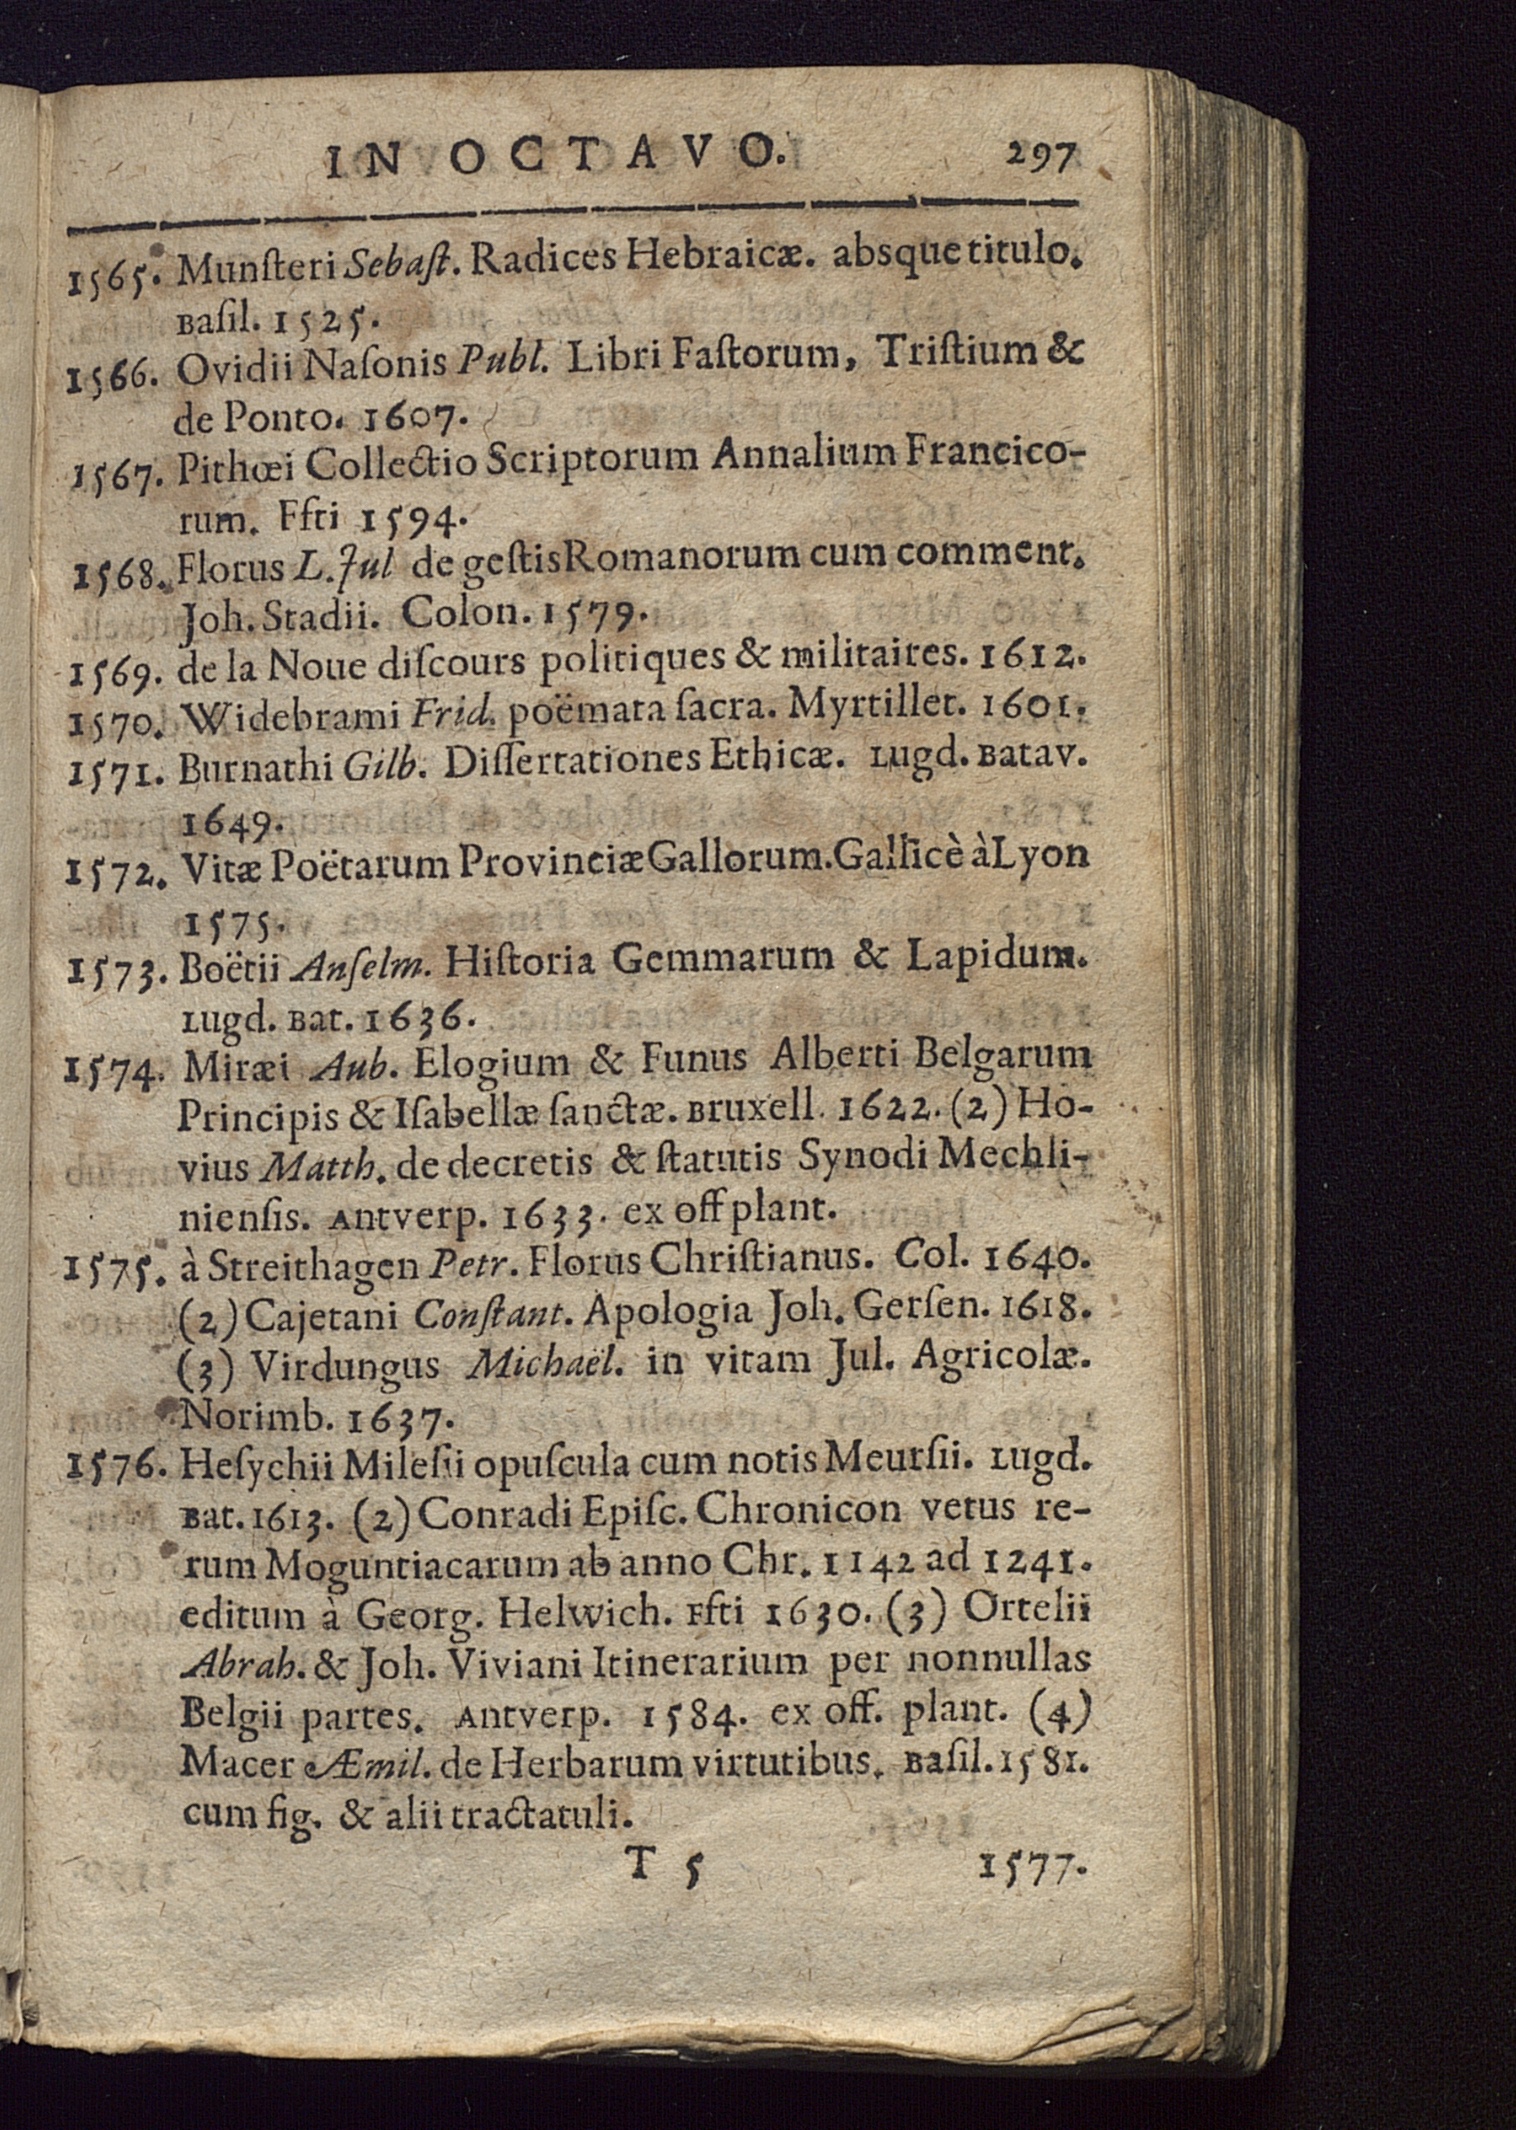 IN OCTAVO. 297
1565. Munſteri Sebaſt. Radices Hebraicæ. absque titulo.
Baſil. 1525.
1566. Ovidii Naſonis Publ. Libri Faſtorum, Triſtium &
de Ponto. 1607.
1567. Pithœi Collectio Scriptorum Annalium Francico-
rum. Ffti 1594.
1568. Florus L. Jul de geſtis Romanorum cum comment.
Joh. Stadii. Colon. 1579.
1569. de la Noue diſcours politiques & militaires. 1612.
1570. Widebrami Frid. poëmata ſacra. Myrtillet. 1601.
1571. Burnathi Gilb. Diſſertationes Ethicæ. Lugd. Batav.
1649.
1572. Vitæ Poëtarum Provinciæ Gallorum. Gallicè à Lyon
1575.
1573. Boëtii Anſelm. Hiſtoria Gemmarum & Lapidum.
Lugd. Bat. 1636.
1574. Miræi Aub. Elogium & Funus Alberti Belgarum
Principis & Iſabellæ ſanctæ. Bruxell. 1622. (2) Ho-
vius Matth. de decretis & ſtatutis Synodi Mechli-
nienſis. Antverp. 1633. ex off plant.
1575. à Streithagen Petr. Florus Chriſtianus. Col. 1640.
(2) Cajetani Conſtant. Apologia Joh. Gerſen. 1618.
(3) Virdungus Michaël. in vitam Jul. Agricolæ.
Norimb. 1637.
1576. Heſychii Mileſii opuſcula cum notis Meurſii. Lugd.
Bat. 1613. (2) Conradi Epiſc. Chronicon vetus re-
rum Moguntiacarum ab anno Chr. 1142 ad 1241.
editum à Georg. Helwich. Ffti 1630. (3) Ortelii
Abrah. & Joh. Viviani Itinerarium per nonnullas
Belgii partes. Antverp. 1584. ex off. plant. (4)
Macer Æmil. de Herbarum virtutibus. Baſil. 1581.
cum fig. & alii tractatuli.
T 5 1577.